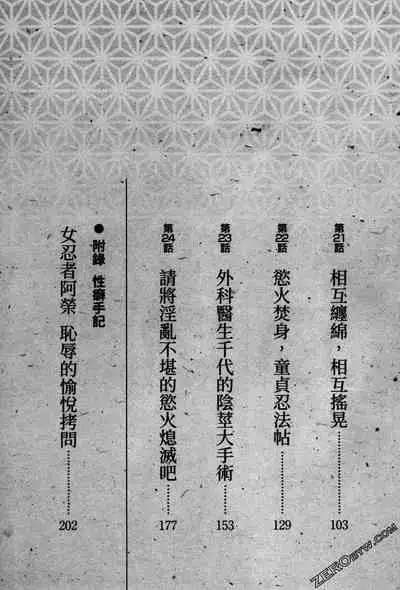 第21話 相互纏綿，相互搖晃………103
第22話 慾火焚身，童貞忍法帖………129
第23話 外科醫生千代的陰莖大手術………153
第24話 請將淫亂不堪的慾火熄滅吧………177
●附錄 性癖手記
女忍者阿榮 恥辱的愉悅拷問………202
ZEROBYW.COM